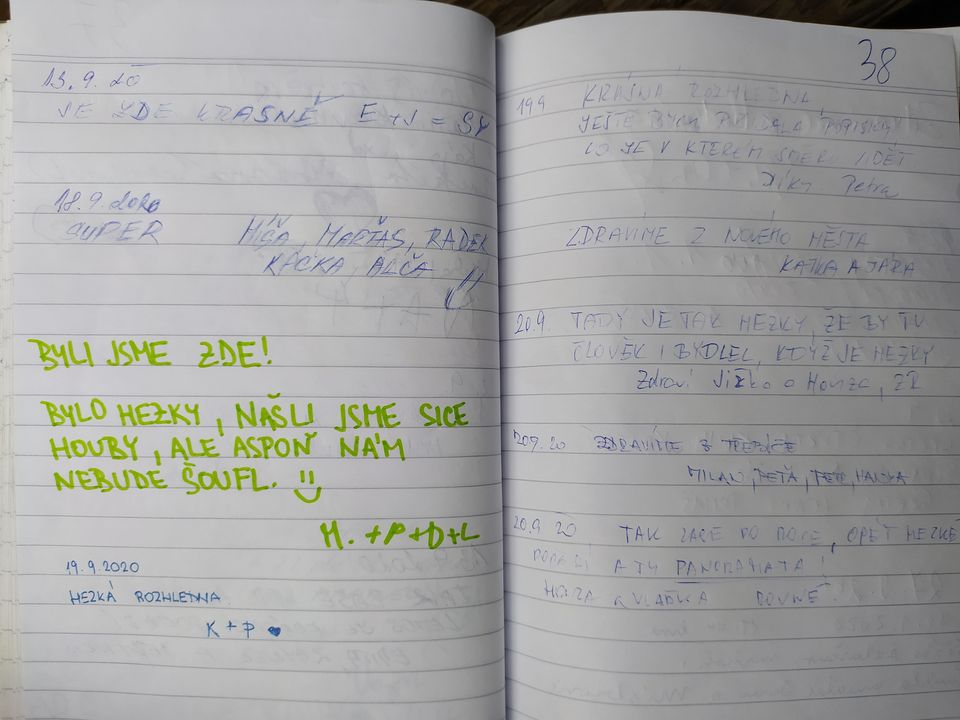 13.9.20
JE ZDE KRÁSNĚ E+J = SY
18.9.2020
SUPER MÍŠA, MARŤAS, RADEK
KAČKA, ALČA
BYLI JSME ZDE!
BYLO HEZKY, NAŠLI JSME SICE
HOUBY, ALE ASPOŇ NÁM
NEBUDE ŠOUFL.
M. +P+D+L
19.9.2020
HEZKÁ ROZHLEDNA
K + P
38
19.9 KRÁSNÁ ROZHLEDNA,
JEŠTĚ BYCH PŘIDALA POPISKY
CO JE V KTERÉM SMĚRU VIDĚT
Díky Petra
ZDRAVÍME Z NOVÉHO MĚSTA
KATKA A JÁRA
20.9. TADY JE TAK HEZKY, ŽE BY TU
ČLOVĚK I BYDLEL, KDYŽ JE HEZKY
Zdraví Jiřko a Honza, ZR
20.9.20 ZDRAVÍME Z TŘEBÍČE
MILAN, PEŤA, PETR, HANKA
20.9.20, TAK ZASE PO ROCE, OPĚT HEZKÉ
POČASÍ A TY PANORAMATA!
HONZA A VLAĎKA